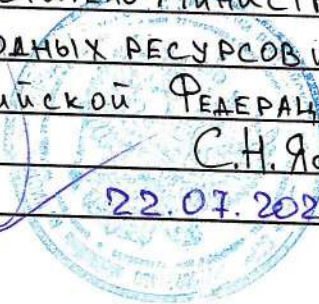 МИНИСТР
ОДНЫХ РЕСУРСОВ И
ИЙСКОЙ ФЕДЕРАЦ
С.Н. Яс
22.07.202